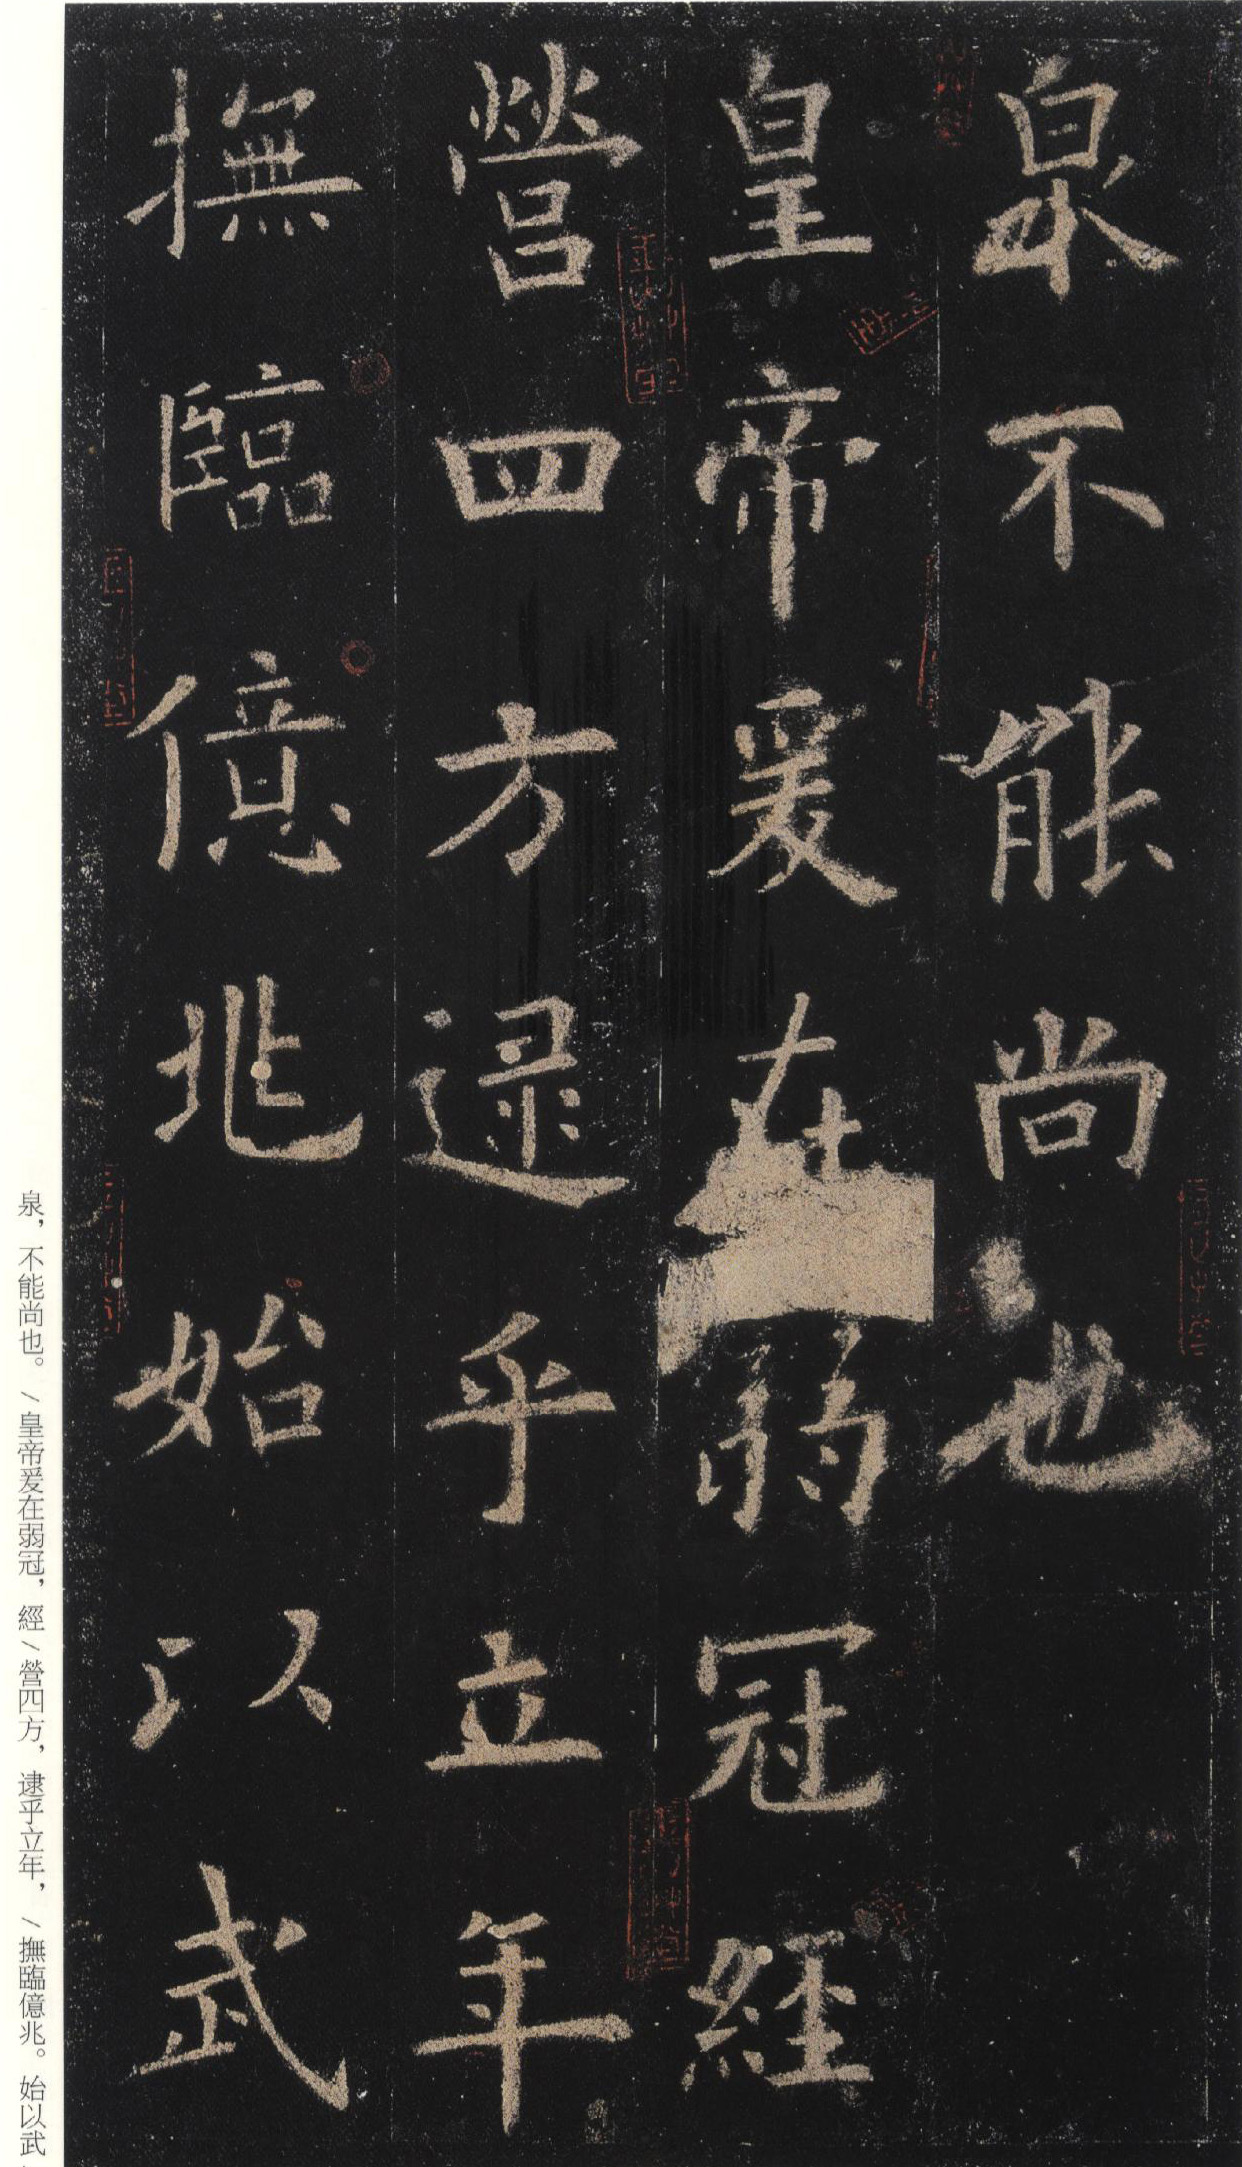 泉不能尚也
皇帝爰在弱冠經
營四方逮乎立年
撫臨億兆始以武
泉，不能尚也。/皇帝爰在弱冠，經/營四方，逮乎立年，/撫臨億兆。始以武